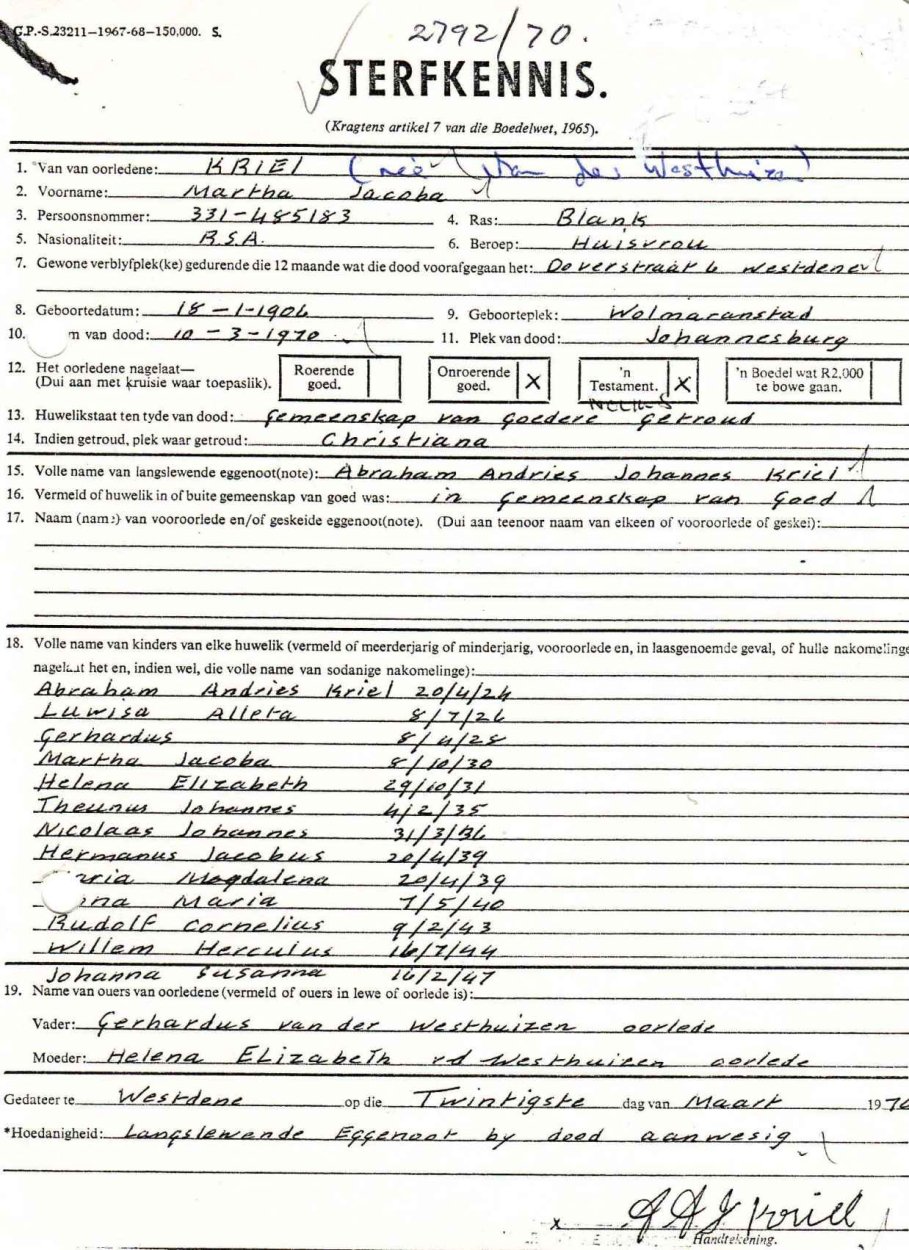 G.P.-S.23211—1967-68—150,000. S.
2792/70.
STERFKENNIS.
(Kragtens artikel 7 van die Boedelwet, 1965).
1. *Van van oorledene: KRIEL (née van der Westhuizen)
2. Voorname: Martha Jacoba
3. Persoonsnommer: 331-485183 4. Ras: Blank
5. Nasionaliteit: R.S.A. 6. Beroep: Huisvrou
7. Gewone verblyfplek(ke) gedurende die 12 maande wat die dood voorafgegaan het: Doverstraat 6 Westdene
8. Geboortedatum: 18-1-1906 9. Geboorteplek: Wolmaranstad
10. m van dood: 10-3-1970 11. Plek van dood: Johannesburg
12. Het oorledene nagelaat— (Dui aan met kruisie waar toepaslik). Roerende goed. Onroerende goed. X 'n Testament. X 'n Boedel wat R2,000 te bowe gaan.
13. Huwelikstaat ten tyde van dood: Gemeenskap van Goedere Getroud
14. Indien getroud, plek waar getroud: Christiana
15. Volle name van langslewende eggenoot(note): Abraham Andries Johannes Kriel
16. Vermeld of huwelik in of buite gemeenskap van goed was: in Gemeenskap van Goed
17. Naam (name) van vooroorlede en/of geskeide eggenoot(note). (Dui aan teenoor naam van elkeen of vooroorlede of geskei):
18. Volle name van kinders van elke huwelik (vermeld of meerderjarig of minderjarig, vooroorlede en, in laasgenoemde geval, of hulle nakomelinge
nagelaat het en, indien wel, die volle name van sodanige nakomelinge):
Abraham Andries Kriel 20/4/24
Luwisa Alleta 8/7/26
Gerhardus 8/4/28
Martha Jacoba 8/10/30
Helena Elizabeth 29/10/31
Theunus Johannes 4/2/35
Nicolaas Johannes 31/3/36
Hermanus Jacobus 20/4/39
ria Magdalena 20/4/39
na Maria 7/5/40
Rudolf Cornelius 9/2/43
Willem Herculus 16/7/44
Johanna Susanna 16/2/47
19. Name van ouers van oorledene (vermeld of ouers in lewe of oorlede is):
Vader: Gerhardus van der Westhuizen oorlede
Moeder: Helena Elizabeth vd Westhuizen oorlede
Gedateer te Westdene op die Twintigste dag van Maart 1970
*Hoedanigheid: Langslewende Eggenoot by dood aanwesig
x A A J Kriel
Handtekening.